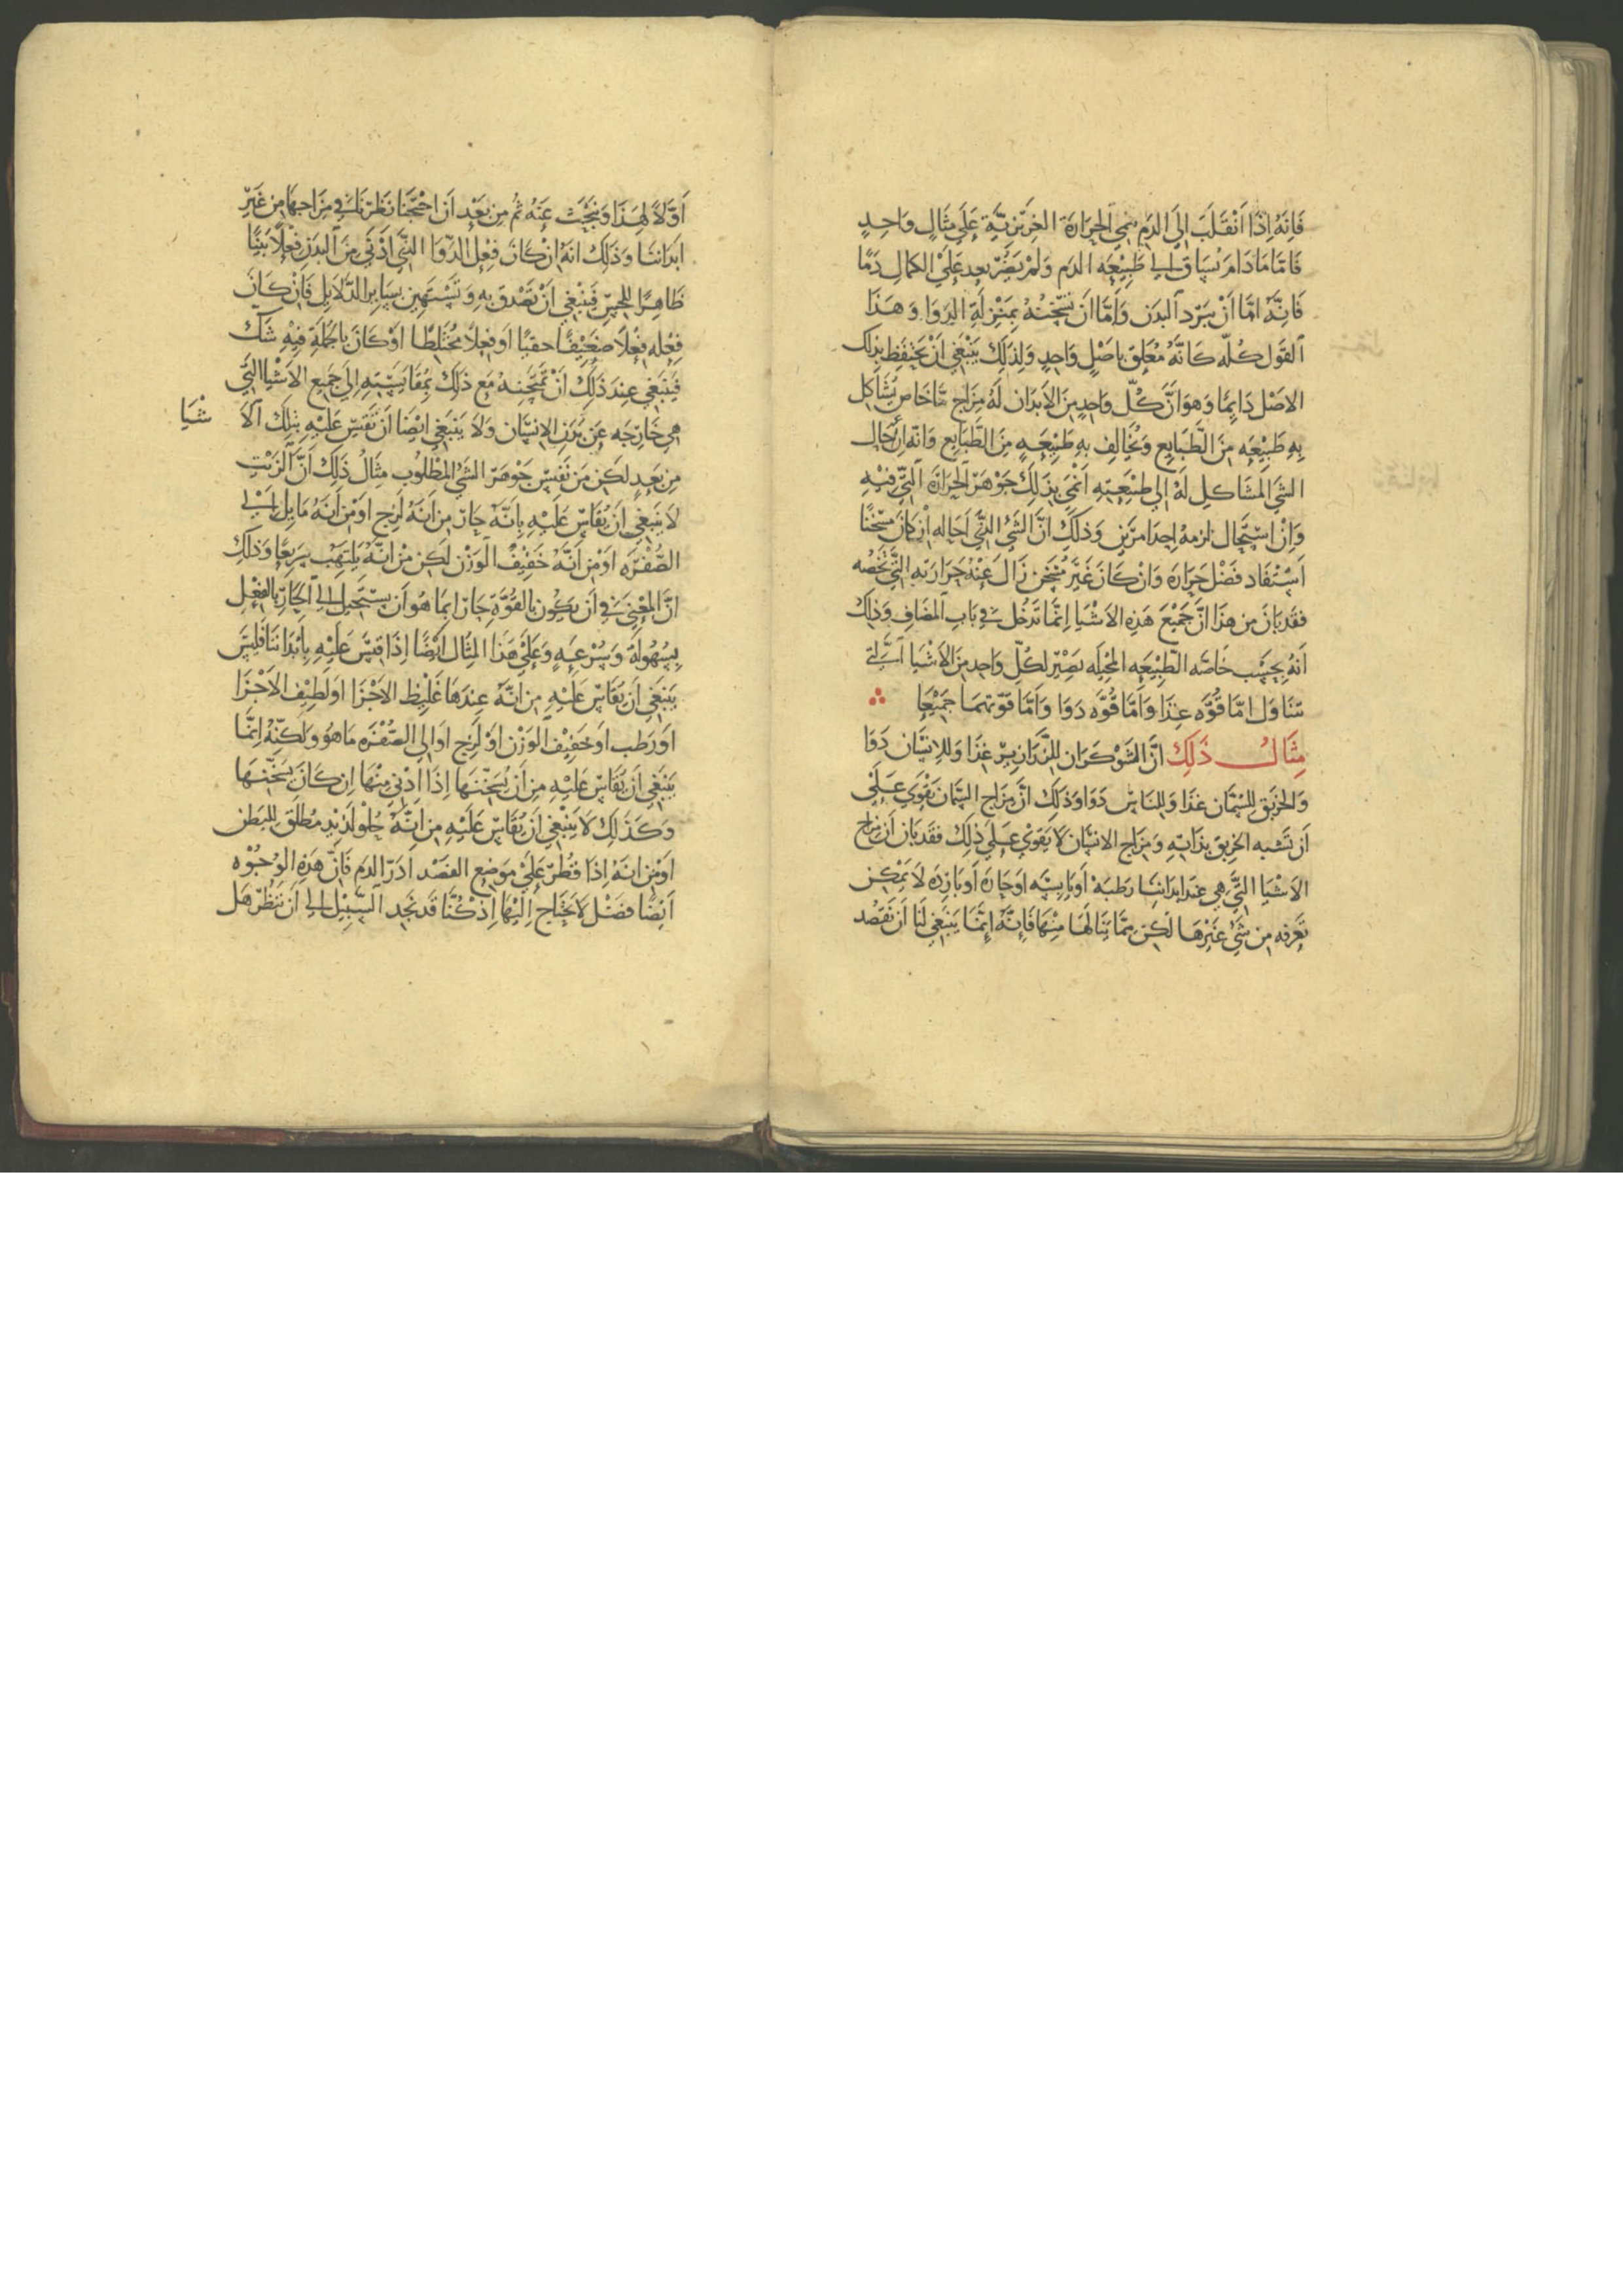 فَانَهُ اِذَا اَنْقَلَبَ اِلَى الدَم يُنمي الحَرَارَة الغَرِيزِيَّة عَلَى مِثَالٍ وَاحِدٍ
فَامَّا مَا دَامَ يُسَاق اِلى طَبِيْعَه الدَم وَلَمْ يَصِرْ بَعد عَلَى الكمالِ دَمًا
فَانَّهُ امَّا اَنْ يبرّد البَدَن وَاَمَّا اَن يُسَخّنهُ بِمَنْزِلَةِ الدَوَا وَهَذَا
القَول كُلّه كَانَّهُ مُعَلَق بِاصْلٍ وَاحِدٍ وَلِذَلِكَ يَنْبَغِي اَنْ يَحتَفِظ بِذلك
الاصْل دَايِمًا وَهوَ انَّ كُلّ وَاحِدٍ مِنَ الاَبدَان لَهُ مِزَاج مَّا خَاص يُشَاكِل
بِهِ طَبِيْعَه مِنَ الطَّبَايِع وَيُخَالِف بِهِ طَبِيْعَهٍ مِنَ الطَّبَايِع وَانه اِنْ احَال
الشي المشَاكِل لَهُ اِلي طَبِيْعَتِهِ اَنْمَي بِذَلِكَ جَوْهَرَ الحَرَارَة التِّي فِيْهِ
وَاِنْ اسْتِحَال لزمهُ احدَ امرَين وَذلِكَ انَّ الشَيْ الذَّي اَحَاله اِنْ كَانَ مسْخنًا
اَسْتفَاد فَضْل حَرَارَة وَانْ كَانَ غَيَر مُسْخن زَالَ عَنْهُ حَرَارَته التَّي تَخصُه
فقَد بَانَ مِن هَذَا انَّ جَمِيْعَ هَذِهِ الاَشْيَا اِنَّمَا تَدخُل في بَابِ المضَافِ وَذلِكَ
اَنَهُ بِحَسْب خَاصّه الطَّبِيْعَه المحِيْلَه يَصِيْر لِكُلِّ وَاحِد مِنَ الاَشْيَا الَّتي
تتنَاوَل امّا قُوَّه غِذَا وَاَمَّا قُوَّه دَوَا وَاَمَّا قوّتهمَا جَمِيْعًا
مِثَالُ ذَلِكَ انَّ الشوْكَرَان لِلزَّرَازِيرْ غِذَا وَلِلاِنسَان دَوَا
وَالخَرْبق لِلسُمَّان غذَا وَللنَاسْ دَوَا وَذلِكَ انَّ مِزَاج السَّمان يَقْوَي عَلَى
اَن تَشبه الخَرْبق بِذَاتِهِ وَمِزَاج الانسَان لاَ يَقوَيْ عَلَي ذلِكَ فَقَد بَانَ اَن مِزَاج
الاَشْيَا التَّي هِي عَندَ ابدَاننِا رَطبَة اَو يَابِسَه اوَ حَارَة اَو بَارِدَه لاَ يمْكِن
تَعَرفه مِن شَيْ غَيْرهَا لكِن مِمَّا يَنَالهَا مِنْهَا فَاِنَّهُ اِنَّمَا يَنبَغِي لَنَا اَن نَقصُد
اَوَّلاً لِهَذَا وَنبْحَثْ عَنْهُ ثُم مِن بَعَدِ اَن احْتَجْنَا نَظَرنَا في مِزَاجهَا مِن غَيْرِ
اَبدَاننَا وَذَلِكَ انَهُ اِنْ كَانَ فِعْل الدّوَا الذِّي اَدْنَي مِنَ البدَنِ فِعْلاً بَيّنًا
ظَاهِرًا لِلحِسِّ فَيَنْبَغِي اَنْ نصْدق بِهِ وَنَسْتَهِين بِسَايِر الدَّلاَيِل فَاِنْ كَانَ
فِعْله فِعْلاً ضَعِيْفًا خفيًا اَو فِعْلاً مُخْتَلِطًا اَوْ كَانَ بِالجُملَةِ فِيْهِ شَكّ
فَيَنبَغِي عِندَ ذَلِكَ اَنْ نَمتَحِنهُ مَع ذَلِكَ بِمُقَايَسَتِهِ اِلَي جَمِيع الاَشيَا التَّي
هِي خَارِجَه عَن بَدَن الاِنسَان وَلاَ يَنبَغِي ايْضَا اَن نَقِيسَ عَلَيْهِ بِتلِكَ الاَ شْيَا
مِن بَعدٍ لكَن مِن نَفس جَوهَر الشيْ المطْلُوب مِثَالُ ذَلِكَ اَنَّ الزَيْت
لاَ يَنبَغِي اَن يُقَاسَ عَلَيْهِ بِانَّهُ حَارّ مِن اَنهُ لَزِج اَوْ مِن اَنهُ مَايِل اِلى
الصُّفْرَه اَوْ مِن اَنَّهُ خَفِيْف الوَزْن لكِن مِنْ انَّهُ يَلتَهِب سَرِيعًا وَذلِكَ
انَّ المعْنِي في اَن يَكُون بِالقُوَّةِ حَارّ انمَا هُوَ اَن يسْتَحِيل اِلي الحَارّ بالفعْلِ
بِسُهُولَة وَبِسُرْعَهٍ وَعَلَيْ هَذَا المثَال اَيْضًا اِذَا قيْسَ عَلَيْهِ بِاَبْدَاننَا فَليسَ
يَنبَغِي اَن يقَاسَ عَلَيْهِ مِن انَّهُ عِندَهَا غَلِيْظ الاَجْزَا اَو لَطِيْف الاَجْزَا
اَو رَطب اَو خَفِيْف الوَزْن اَوْ لَزِج اَو اِلى الصّفْرَه مَا هُوَ وَلكِنّهُ اِنَّمَا
يَنبَغِي اَن يُقَاسَ عَلَيْهِ مِن اَن يُسَخّنهَا اِذَا اُدْنِي مِنْهَا اِن كَانَ يُسَخّنهَا
وَكَذَلِكَ لاَ يَنْبَغِي اَن يُقَاسَ عَلَيْهِ مِن انَّهُ حُلو لَذيْذ مُطلَق لِلبَطن
اَوْ مِن انَهُ اِذَا قُطّرَ عَلَيْ مَوضِع الفَصْد ادَرّ الدَم فَانَّ هَذِهِ الوجُوْه
اَيْضًا فضْل لاَ يُحتَاج اِلَيْهَا اِذْ كُنَّا قَد نَجِد السَّبِيْل اِلى اَن نَنْظُر هَل